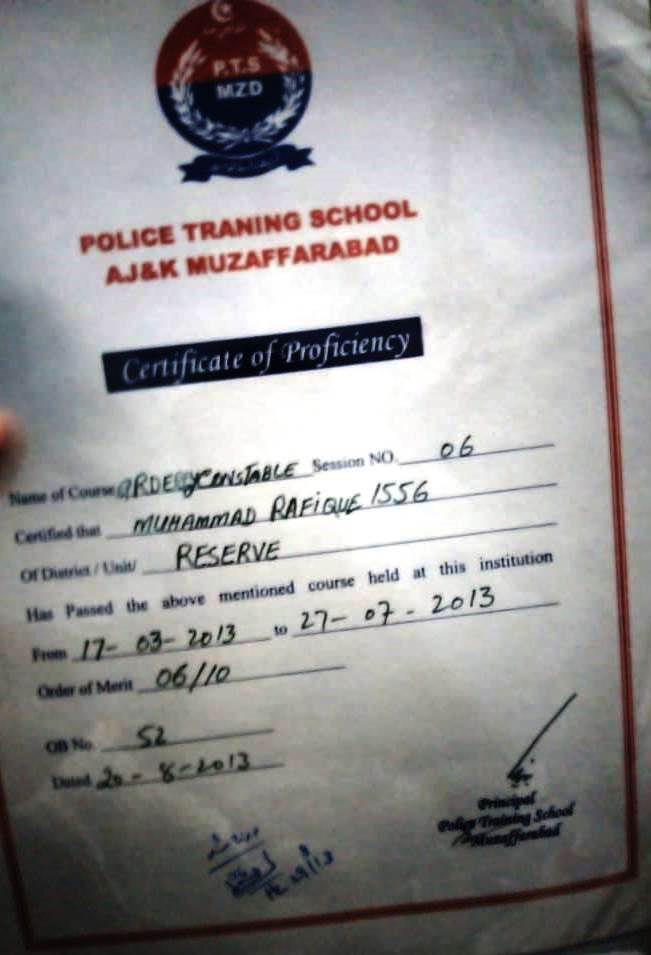 P.T.S
MZD
POLICE TRANING SCHOOL
AJ&K MUZAFFARABAD
Certificate of Proficiency
Name of Course ORDERLY CONSTABLE Session NO. 06
Certified that MUHAMMAD RAFIQUE 1556
Of District / Unit/ RESERVE
Has Passed the above mentioned course held at this institution
From 17-03-2013 to 27-07-2013
Order of Merit 06/10
OB No. 52
Dated 20-8-2013
Principal
Police Training School
Muzaffarabad